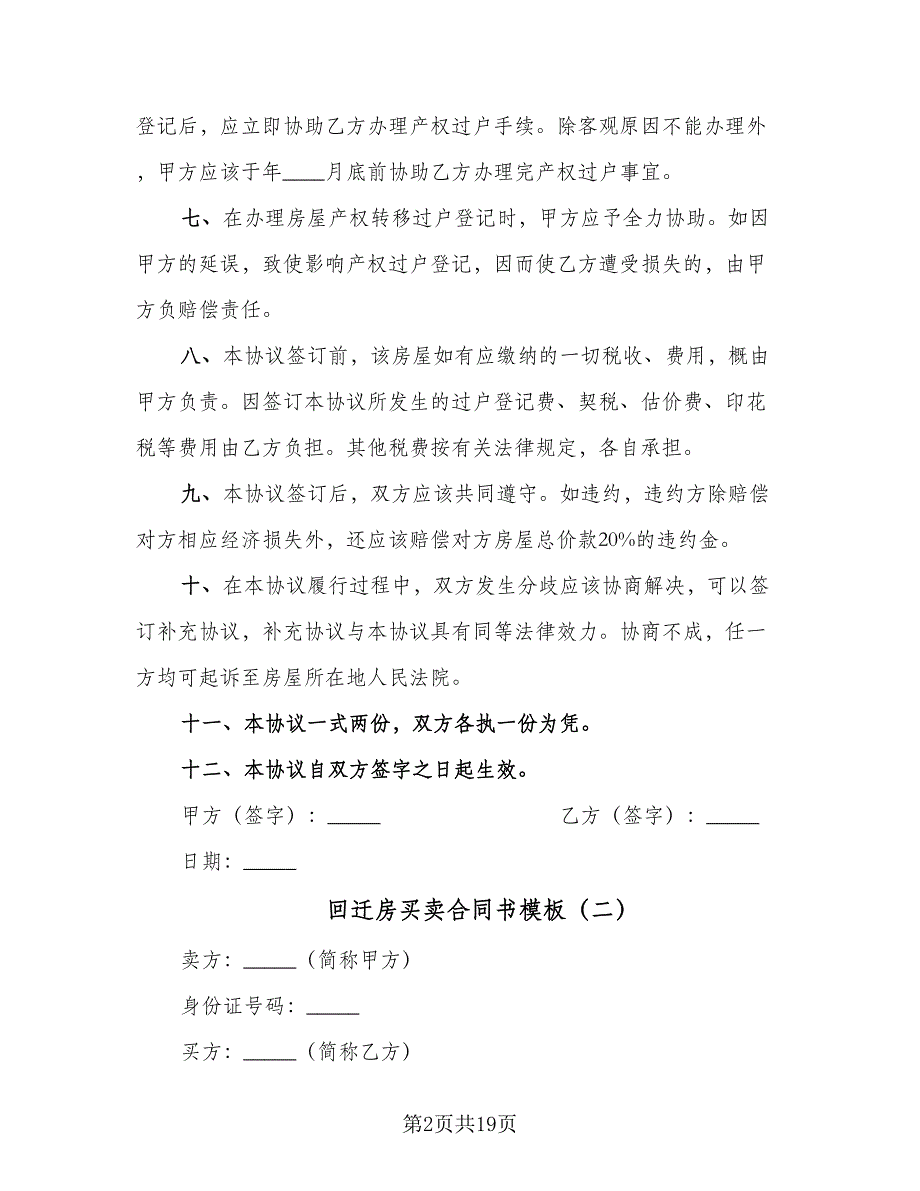 登记后，应立即协助乙方办理产权过户手续。除客观原因不能办理外
，甲方应该于年____月底前协助乙方办理完产权过户事宜。
七、在办理房屋产权转移过户登记时，甲方应予全力协助。如因
甲方的延误，致使影响产权过户登记，因而使乙方遭受损失的，由甲
方负赔偿责任。
八、本协议签订前，该房屋如有应缴纳的一切税收、费用，概由
甲方负责。因签订本协议所发生的过户登记费、契税、估价费、印花
税等费用由乙方负担。其他税费按有关法律规定，各自承担。
九、本协议签订后，双方应该共同遵守。如违约，违约方除赔偿
对方相应经济损失外，还应该赔偿对方房屋总价款20%的违约金。
十、在本协议履行过程中，双方发生分歧应该协商解决，可以签
订补充协议，补充协议与本协议具有同等法律效力。协商不成，任一
方均可起诉至房屋所在地人民法院。
十一、本协议一式两份，双方各执一份为凭。
十二、本协议自双方签字之日起生效。
甲方（签字）：_____ 乙方（签字）：_____
日期：_____
回迁房买卖合同书模板（二）
卖方：_____（简称甲方）
身份证号码：_____
买方：_____（简称乙方）
第2页共19页